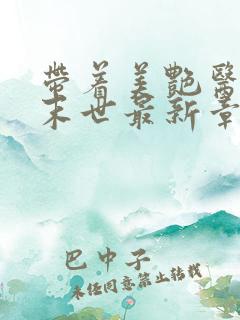 带着美艷醫
末世最新章
巴中子
未经同意禁止转载